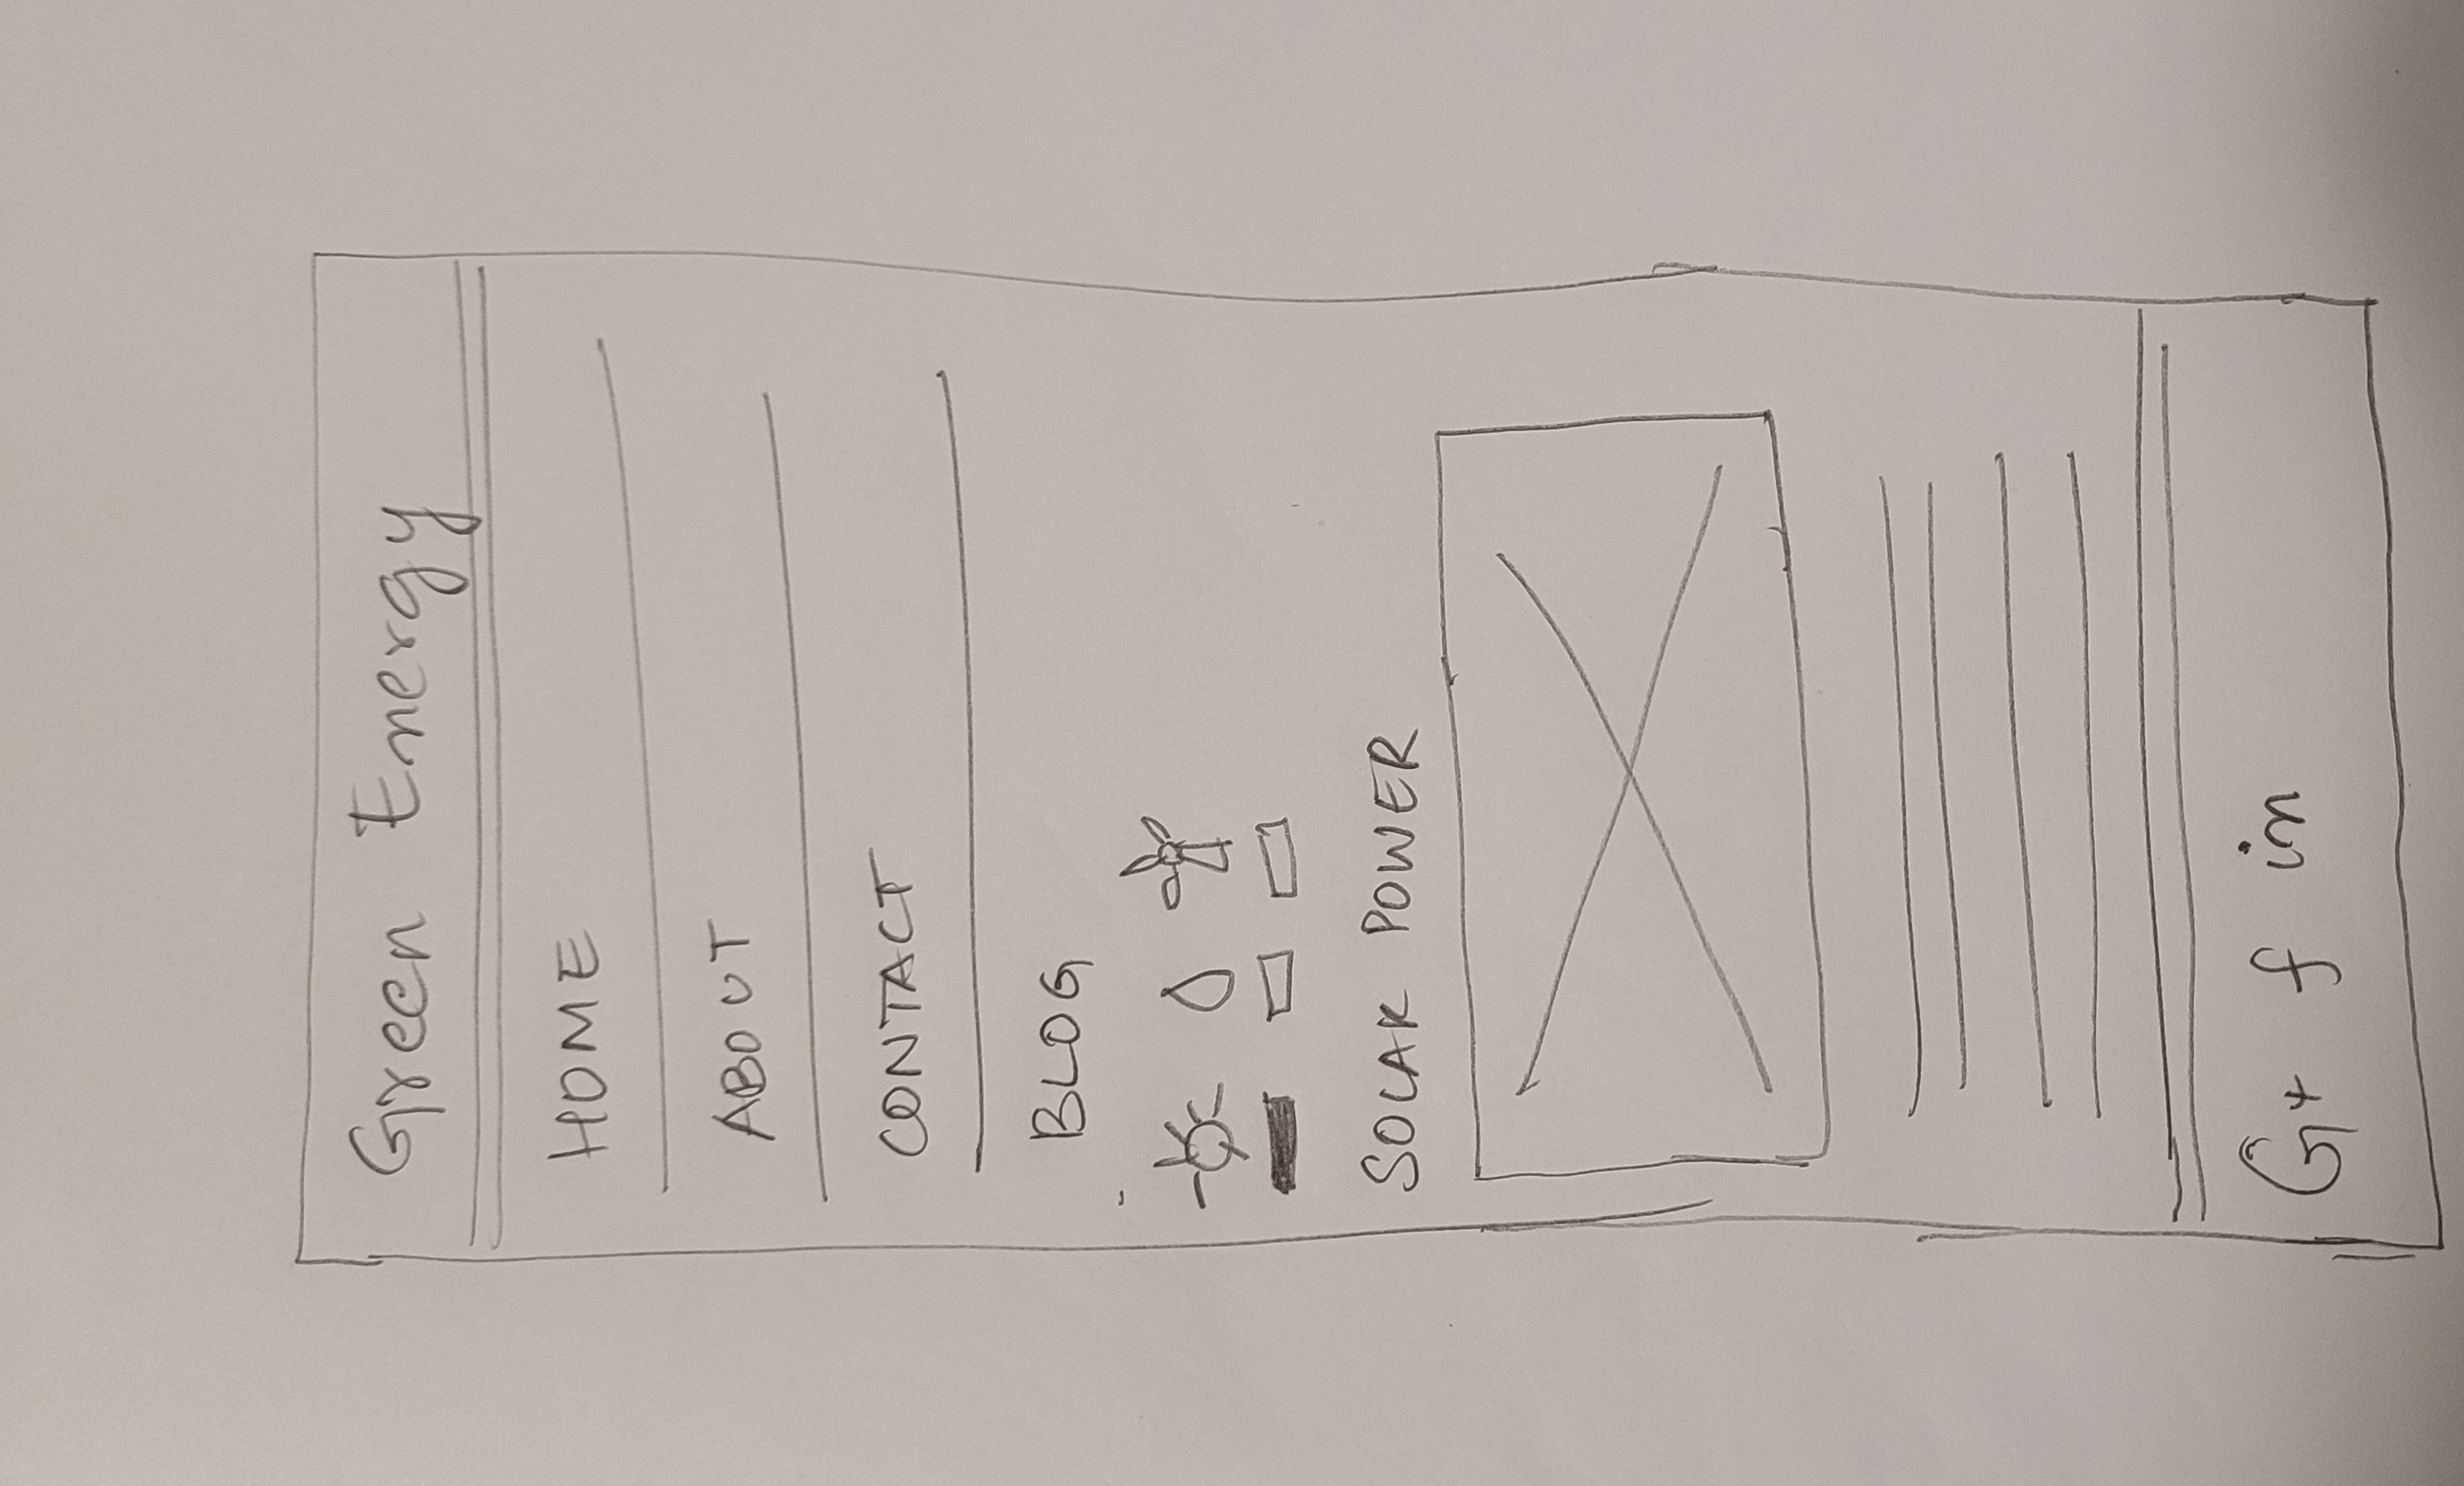 Green Energy
HOME
ABOUT
CONTACT
BLOG
SOLAR POWER
G+ f in